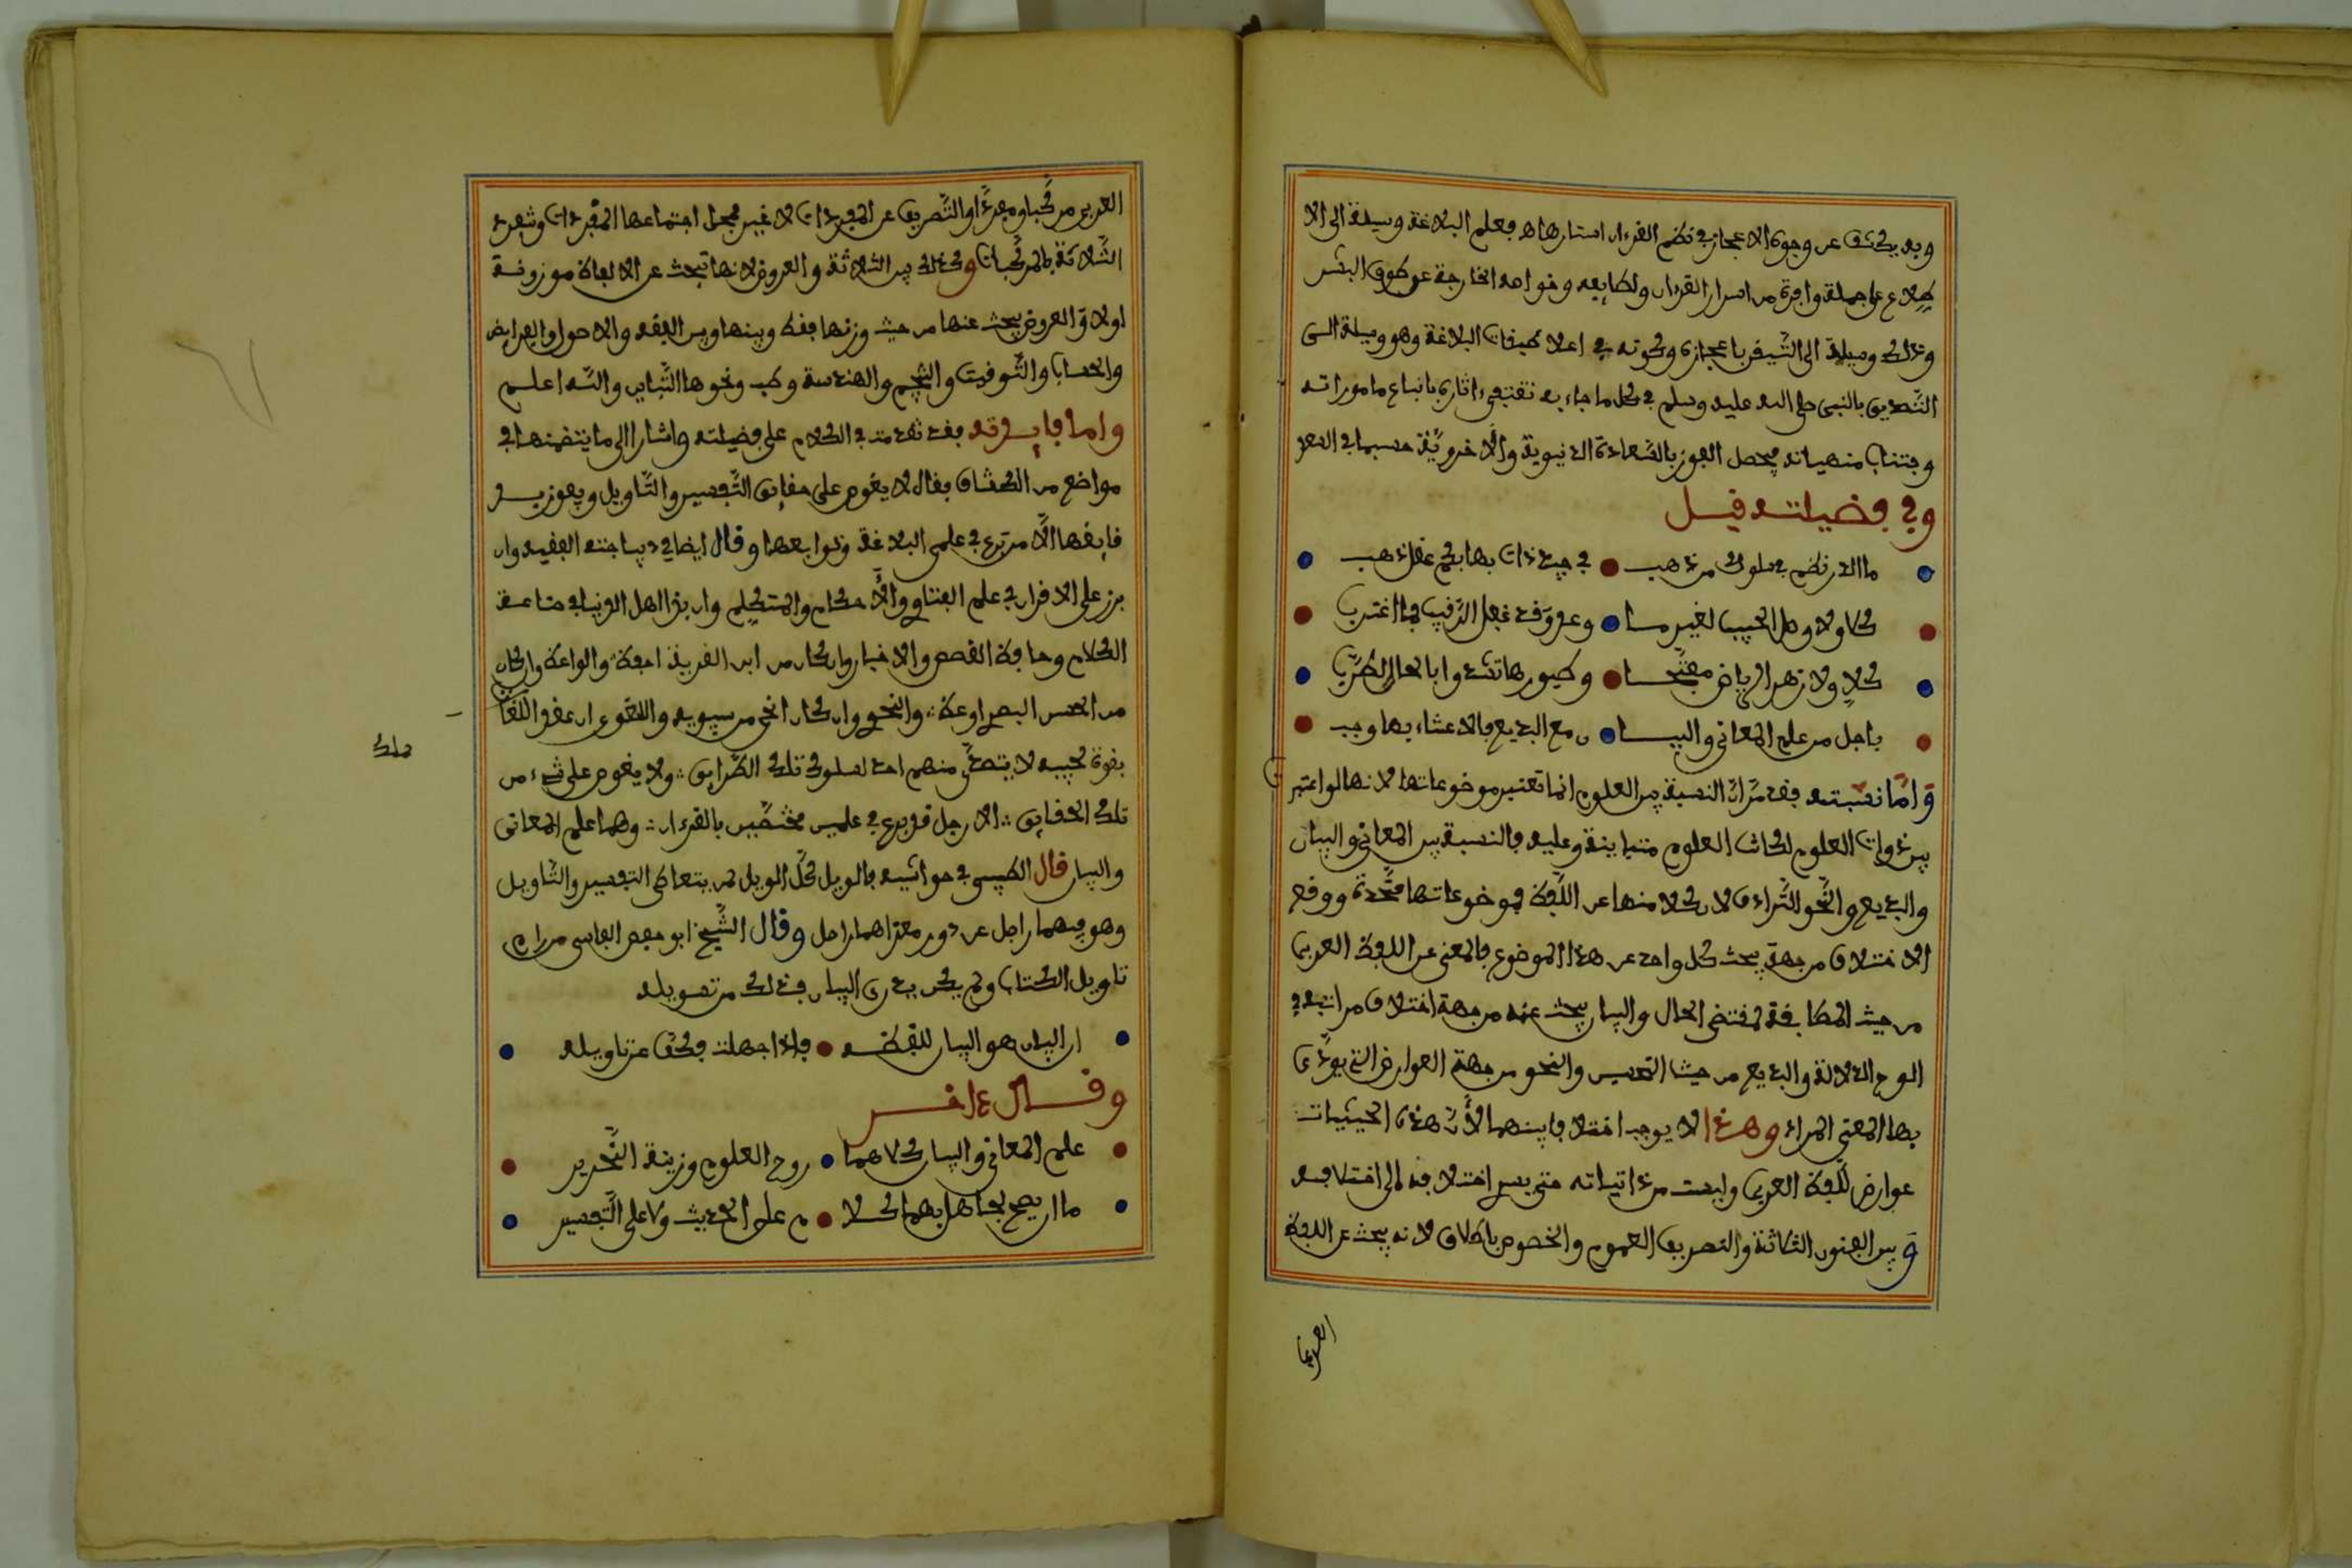 وبه يكشف عن وجوه الاعجاز في نظم القرءان استارها ه فعلم البلاغة وسيلة الى الا
طلاع على جملة وافرة من اسرار القرءان ولطايفه وخواصه الخارجة عن طوق البشر
وذلك وسيلة الى التيقن باعجازه وكونه في اعلا طبقات البلاغة وهو وسيلة الى
التصديق بالنبي صلى الله عليه وسلم في كل ما جاء به تقتفى ءاثاره باتباع ماموراته
وجتناب منهياته فيحصل الفوز بالسعادة الدنيوية والاخروية حسبما في السعد
وفي فضيلته قيل
ما الدر نظم في سلوك من ذهب في جيد ذات بها بكم عقل ذهب
كلا ولا وصل الحبيب لغير مسا وعد وقد غفل الرقيب فما اغترب
كلا ولا زهر الرياض مفتحا وطيورها تشدوا بالحان الطرب
باجل من علم المعاني والبيا ن مع البديع فالاعتناء بها وجب
واما نسبته فقد مر ان النسبة بين العلوم انما تعتبر موضوعاتها لانها لو اعتبر
بين ذوات العلوم لكانت العلوم متباينة وعليه فالنسبة بين المعاني والبيان
والبديع والنحو الترادف لان كلا منها عن اللفظ فموضوعاتها متحدة ووقع
الاختلاف من جهة يبحث كل واحد عن هذا الموضوع فالمعنى عن اللفظ العربي
من حيث المطابقة لمقتضى الحال والبيان يبحث عنه من جهة اختلاف مراتبه في
الوضح الدلالة والبديع من حيث التحسين والنحو من جهة العوارض التي يؤدى
بها المعنى المراد وهذا لا يوجب اختلافا بينهما لان هذه الحيثيات
عوارض للفظ العربي وليست من ذاتياته حتى يسرى اختلافه الى اختلافه
وبين الفنون الثلاثة والتصريف العموم والخصوص باطلاق لانه يبحث عن اللفظ
العربي
العربي مركبا ومفردا والتصريف عن المفردات لا غير فمحل اجتماعها المفردات وتنفرد
الثلاثة بالمركبات وكذلك بين الثلاثة والعروض لانها تبحث عن الالفاظ موزونة
اولا والعروض يبحث عنها من حيث وزنها فقط وبينها وبين الفقه والاصول والفرايض
والحساب والتوقيت والتنجيم والهندسة وطب ونحوها التباين والله اعلم
واما فايدته فقد تقدمت في الكلام على فضيلته واشار الى ما يتضمنها في
مواضع من الكشاف فقال لا يغوص على حقايق التفسير والتاويل ويفوز بسر
قايقها الا من برع في علمي البلاغة وتوابعها وقال ايضا في ديباجته الفقيه وان
برز على الاقران في علم الفتاوي والاحكام والمتكلم وان بز اهل الدنيا في صناعة
الكلام وحافظ القصص والاخبار وان كان من ابن القرية احفظ والواعظ وان كان
من الحسن البصري اوعظ والنحوي وان كان انحى من سيبويه واللغوي ان علم اللغات
بقوة لحييه لا يتصدى منهم احد لسلوك تلك الطرايق ولا يغوص على شيء من
تلك الحقايق الا رجل قد برع في علمين مختصين بالقرءان وهما علم المعاني
والبيان قال الطيبي في حواشيه فالويل كل الويل لمن يتعاطى التفسير والتاويل
وهو فيهما راجل عن دور مغزاهما راحل وقال الشيخ ابو حفص الفاسي من رام
تاويل الكتاب ولم يكن يدرى البيان فذلك من تسويله
ان البيان هو البيان للفظه فاذا جهلت فكف عن تاويله
وقال ءاخر
علم المعاني والبيان كلاهما روح العلوم وزينة التحرير
ما ان يصح لجاهل بهما الكلا م على الحديث ولا على التفسير